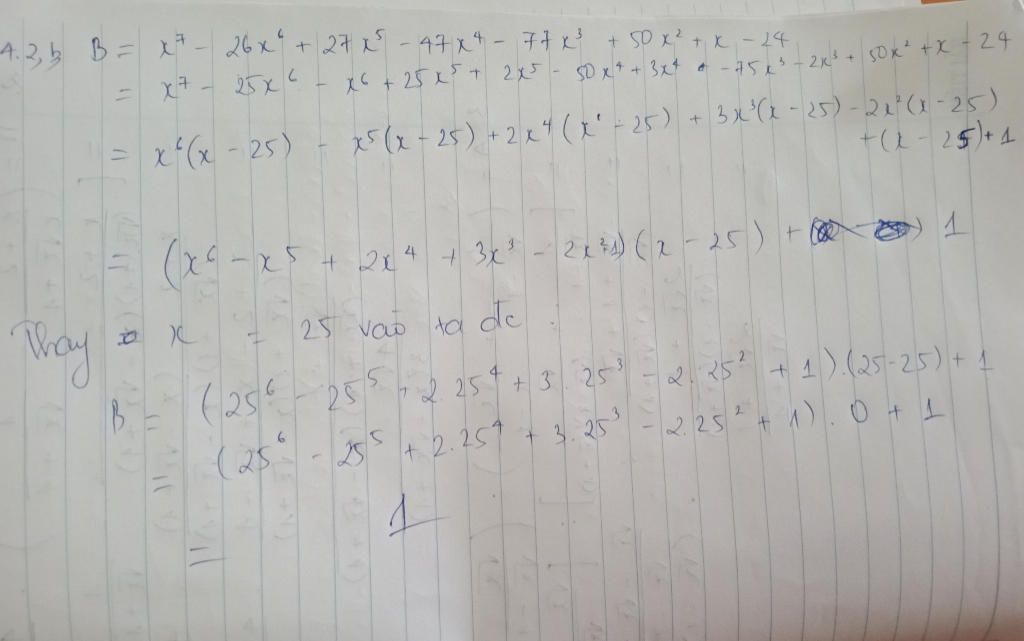 4.3,b B = x⁷ - 26x⁶ + 27x⁵ - 47x⁴ - 77x³ + 50x² + x - 24
= x⁷ - 25x⁶ - x⁶ + 25x⁵ + 2x⁵ - 50x⁴ + 3x⁴ - 75x³ - 2x³ + 50x² + x - 24
= x⁶(x - 25) - x⁵(x - 25) + 2x⁴(x - 25) + 3x³(x - 25) - 2x²(x - 25)
+ (x - 25) + 1
= (x⁶ - x⁵ + 2x⁴ + 3x³ - 2x² + 1)(x - 25) + 1
Thay x = 25 vào ta đc :
B = (25⁶ - 25⁵ + 2.25⁴ + 3.25³ - 2.25² + 1).(25-25) + 1
= (25⁶ - 25⁵ + 2.25⁴ + 3.25³ - 2.25² + 1).0 + 1
= 1